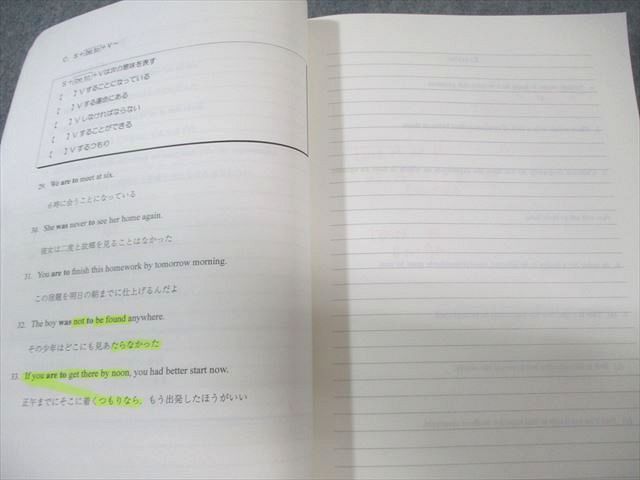 C. S+(be to)+V～
S+(be to)+Vは次の意味を表す
【　　】Vすることになっている
【　　】Vする運命にある
【　　】Vしなければならない
【　　】Vすることができる
【　　】Vするつもり
29. We are to meet at six.
6時に会うことになっている
30. She was never to see her home again.
彼女は二度と故郷を見ることはなかった
31. You are to finish this homework by tomorrow morning.
この宿題を明日の朝までに仕上げるんだよ
32. The boy was not to be found anywhere.
その少年はどこにも見あたらなかった
33. If you are to get there by noon, you had better start now.
正午までにそこに着くつもりなら，もう出発したほうがいい